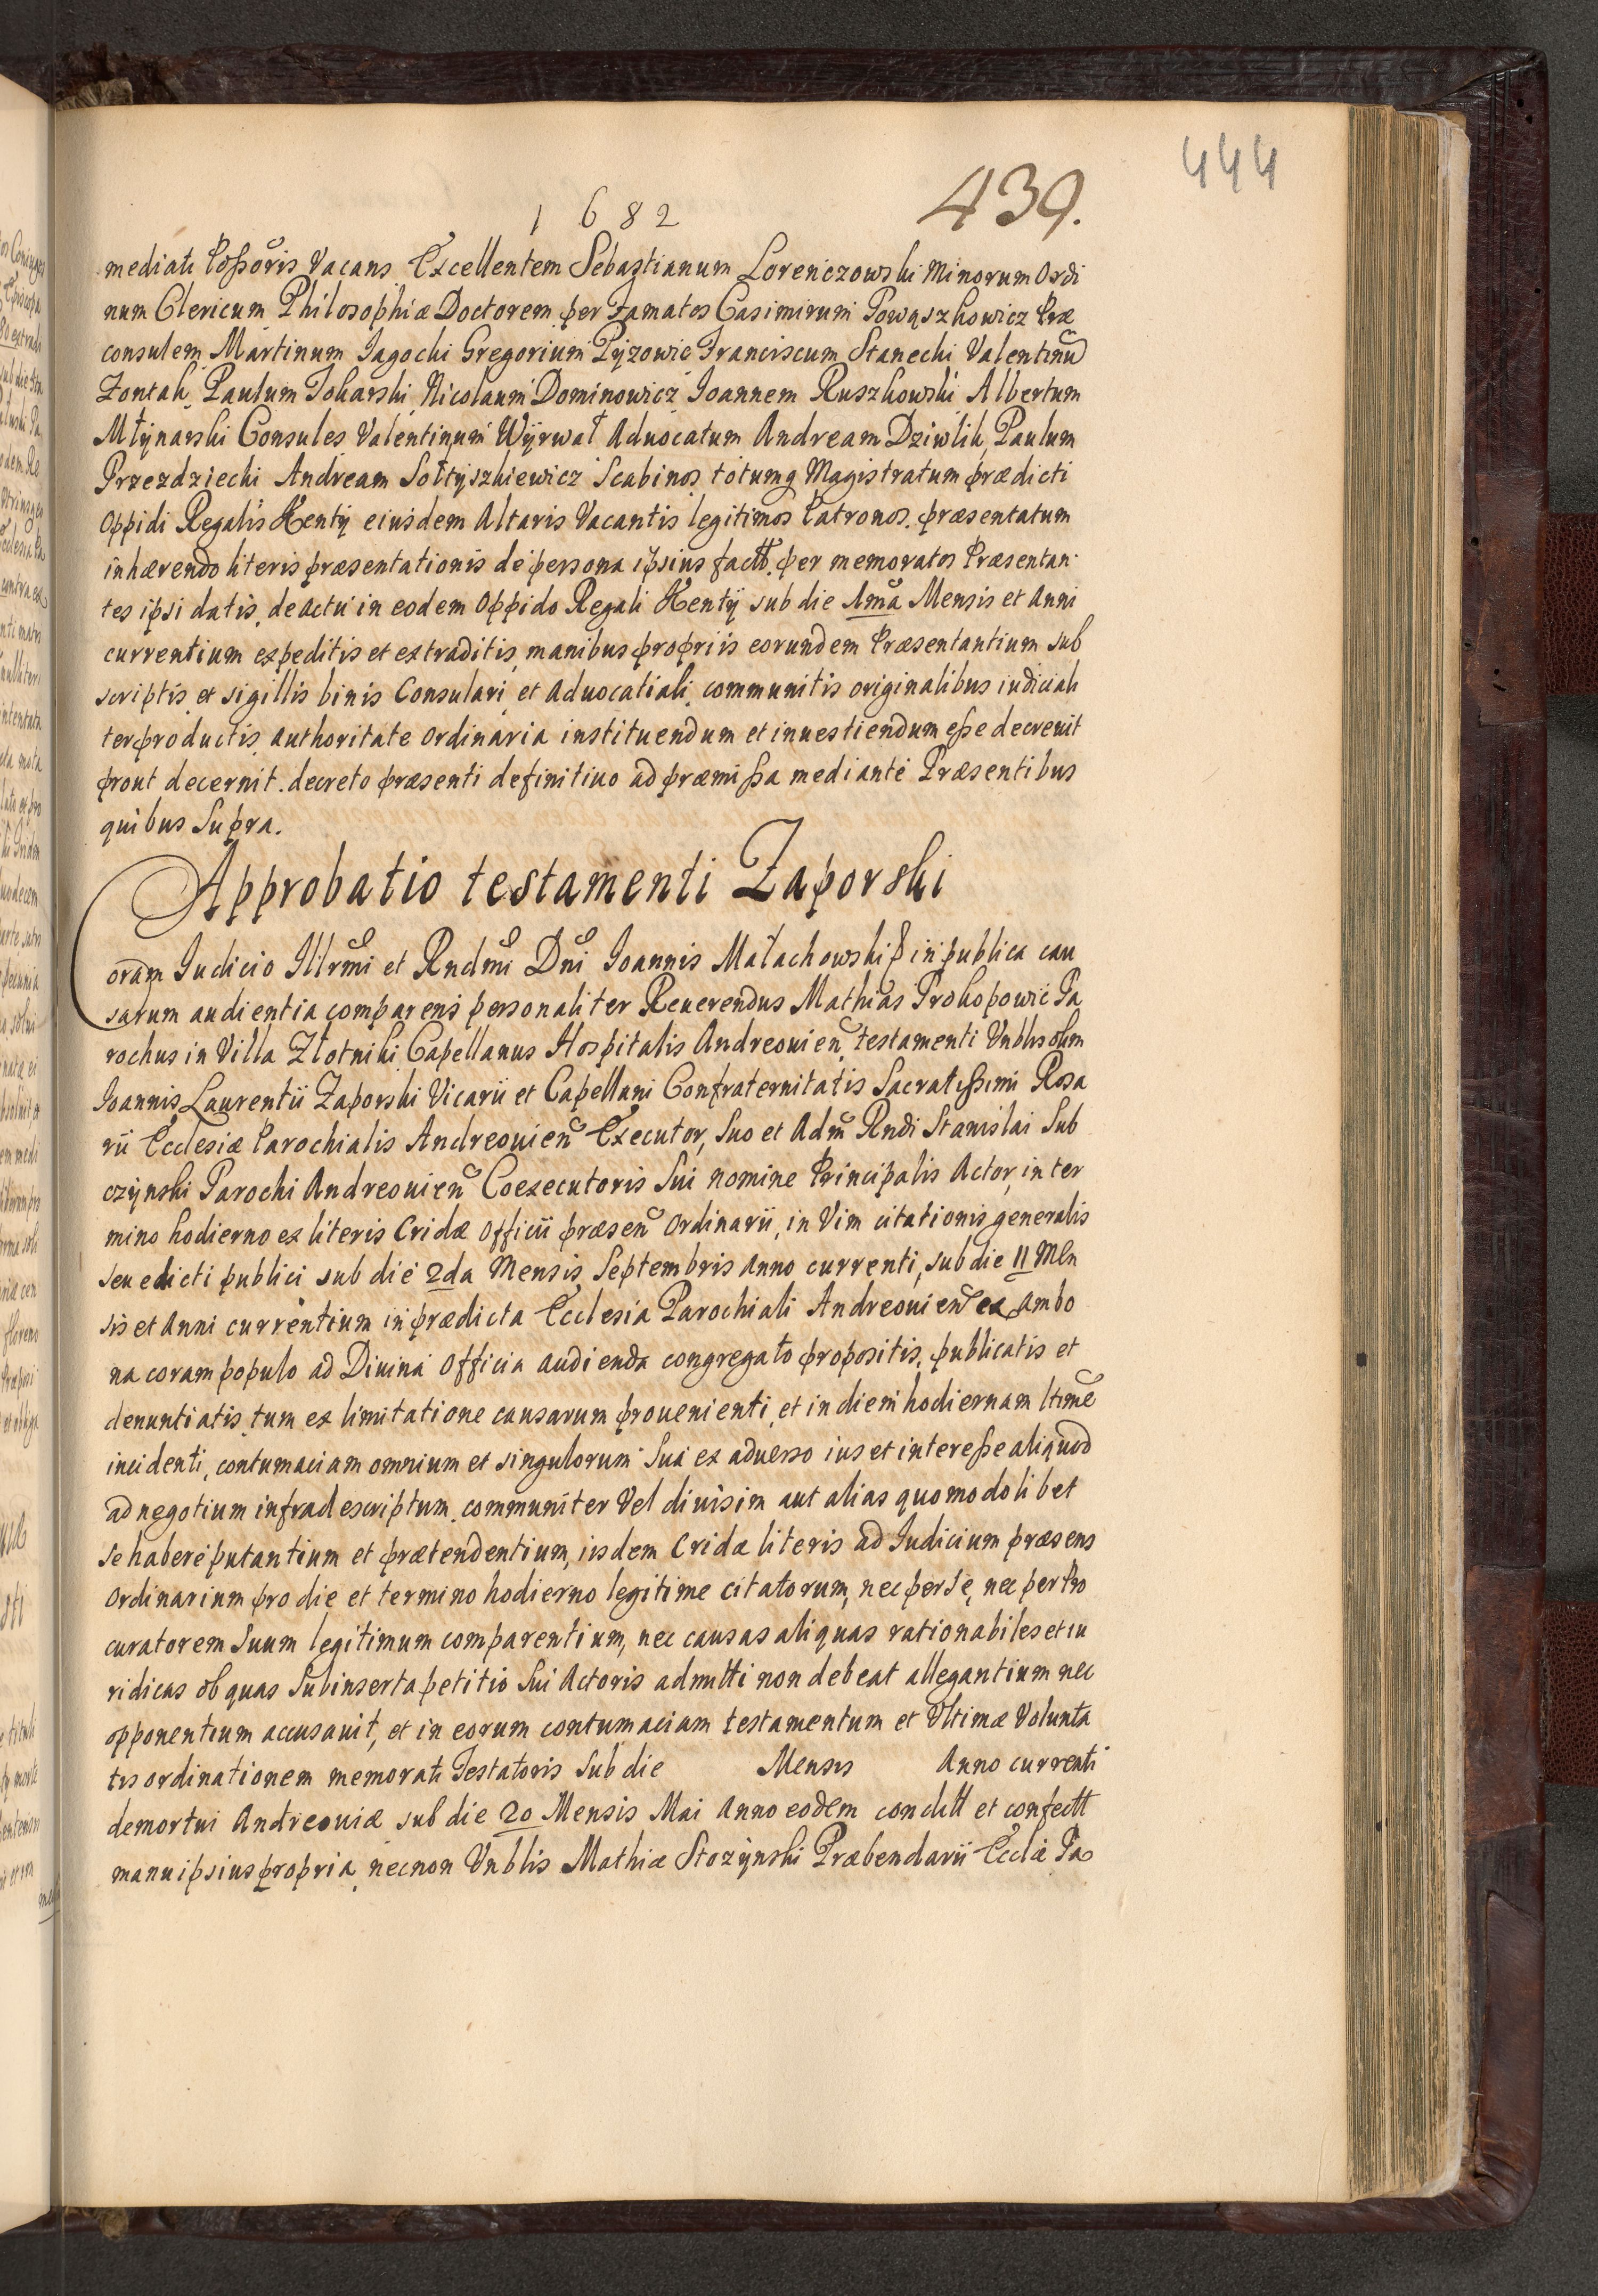 444
439.
1682
mediati Possoris Vacans Excellentem Sebastianum Lorenczowski Minorum Ordi
num Clericum Philosophiæ Doctorem per Famatos Casimirum Powąszkowicz Præ
consulem Martinum Jagocki Gregorium Pyzowic Franciscum Stanecki Valentinū
Zontak Paulum Tokarski Nicolaum Dominowicz Joannem Ruszkowski Albertum
Młÿnarski Consules Valentinum Wÿrwał Aduocatum Andream Dziwlik Paulum
Przezdziecki Andream Sołtÿszkiewicz Scabinos totumq Magistratum prædicti
Oppidi Regalis Kentÿ eiusdem Altaris Vacantis legitimos Patronos. præsentatum
inhærendo literis præsentationis de persona ipsius factt. per memoratos Præsentan-
tes ipsi datis, de actu in eodem Oppido Regali Kentÿ sub die 1ma Mensis et Anni
currentium expeditis et extraditis, manibus propriis eorundem Præsentantium sub
scriptis et sigillis binis Consulari et Aduocatiali communitis originalibus iudiciali
ter productis authoritate Ordinaria instituendum et inuestiendum esse decreuit
prout decernit. decreto præsenti definitiuo ad præmissa mediante Præsentibus
quibus Supra.
Approbatio testamenti Zaporski
Coram Judicio Illrmi et Rndmi Dni Joannis Małachowski in publica cau
sarum audientia comparens personaliter Reuerendus Mathias Prokopowic Pa
rochus in Villa Złotniki Capellanus Hospitalis Andreouien testamenti Vnblis olim
Joannis Laurentii Zaporski Vicarii et Capellani Confraternitatis Sacratissimi Rosa
rii Ecclesiæ Parochialis Andreouien Executor, Suo et Adm Rndi Stanislai Sub
czÿnski Parochi Andreouien Coexecutoris Sui nomine Principalis Actor, in ter
mino hodierno ex literis Cridæ Officii præsen Ordinarii, in Vim citationis generalis
seu edicti publici sub die 2da Mensis Septembris Anno currenti, sub die 11 Men
sis et Anni currentium in prædicta Ecclesia Parochiali Andreouien ex ambo
na coram populo ad Diuina Officia audienda congregato propositis, publicatis et
denuntiatis, tum ex limitatione causarum prouenienti et in diem hodiernam ltime
incidenti, contumaciam omnium et singulorum Sua ex aduerso ius et interesse aliquod
ad negotium infradescriptum communiter Vel diuisim aut alias quomodolibet
se habere putantium et prætendentium, iisdem Cridæ literis ad Judicium præsens
Ordinarium pro die et termino hodierno legitime citatorum, nec per se, nec per Pro
curatorem Suum legitimum comparentium, nec causas aliquas rationabiles et iu
ridicas ob quas Subinserta petitio Sui Actoris admitti non debeat allegantium nec
opponentium accusauit, et in eorum contumaciam testamentum et Vltimæ Volunta
tis ordinationem memorati Testatoris Sub die Mensis Anno currenti
demortui Andreouiæ sub die 20 Mensis Mai Anno eodem conditt et confectt
manu ipsius propria, necnon Vnblis Mathiæ Stozÿnski Præbendarii Eccla Pa